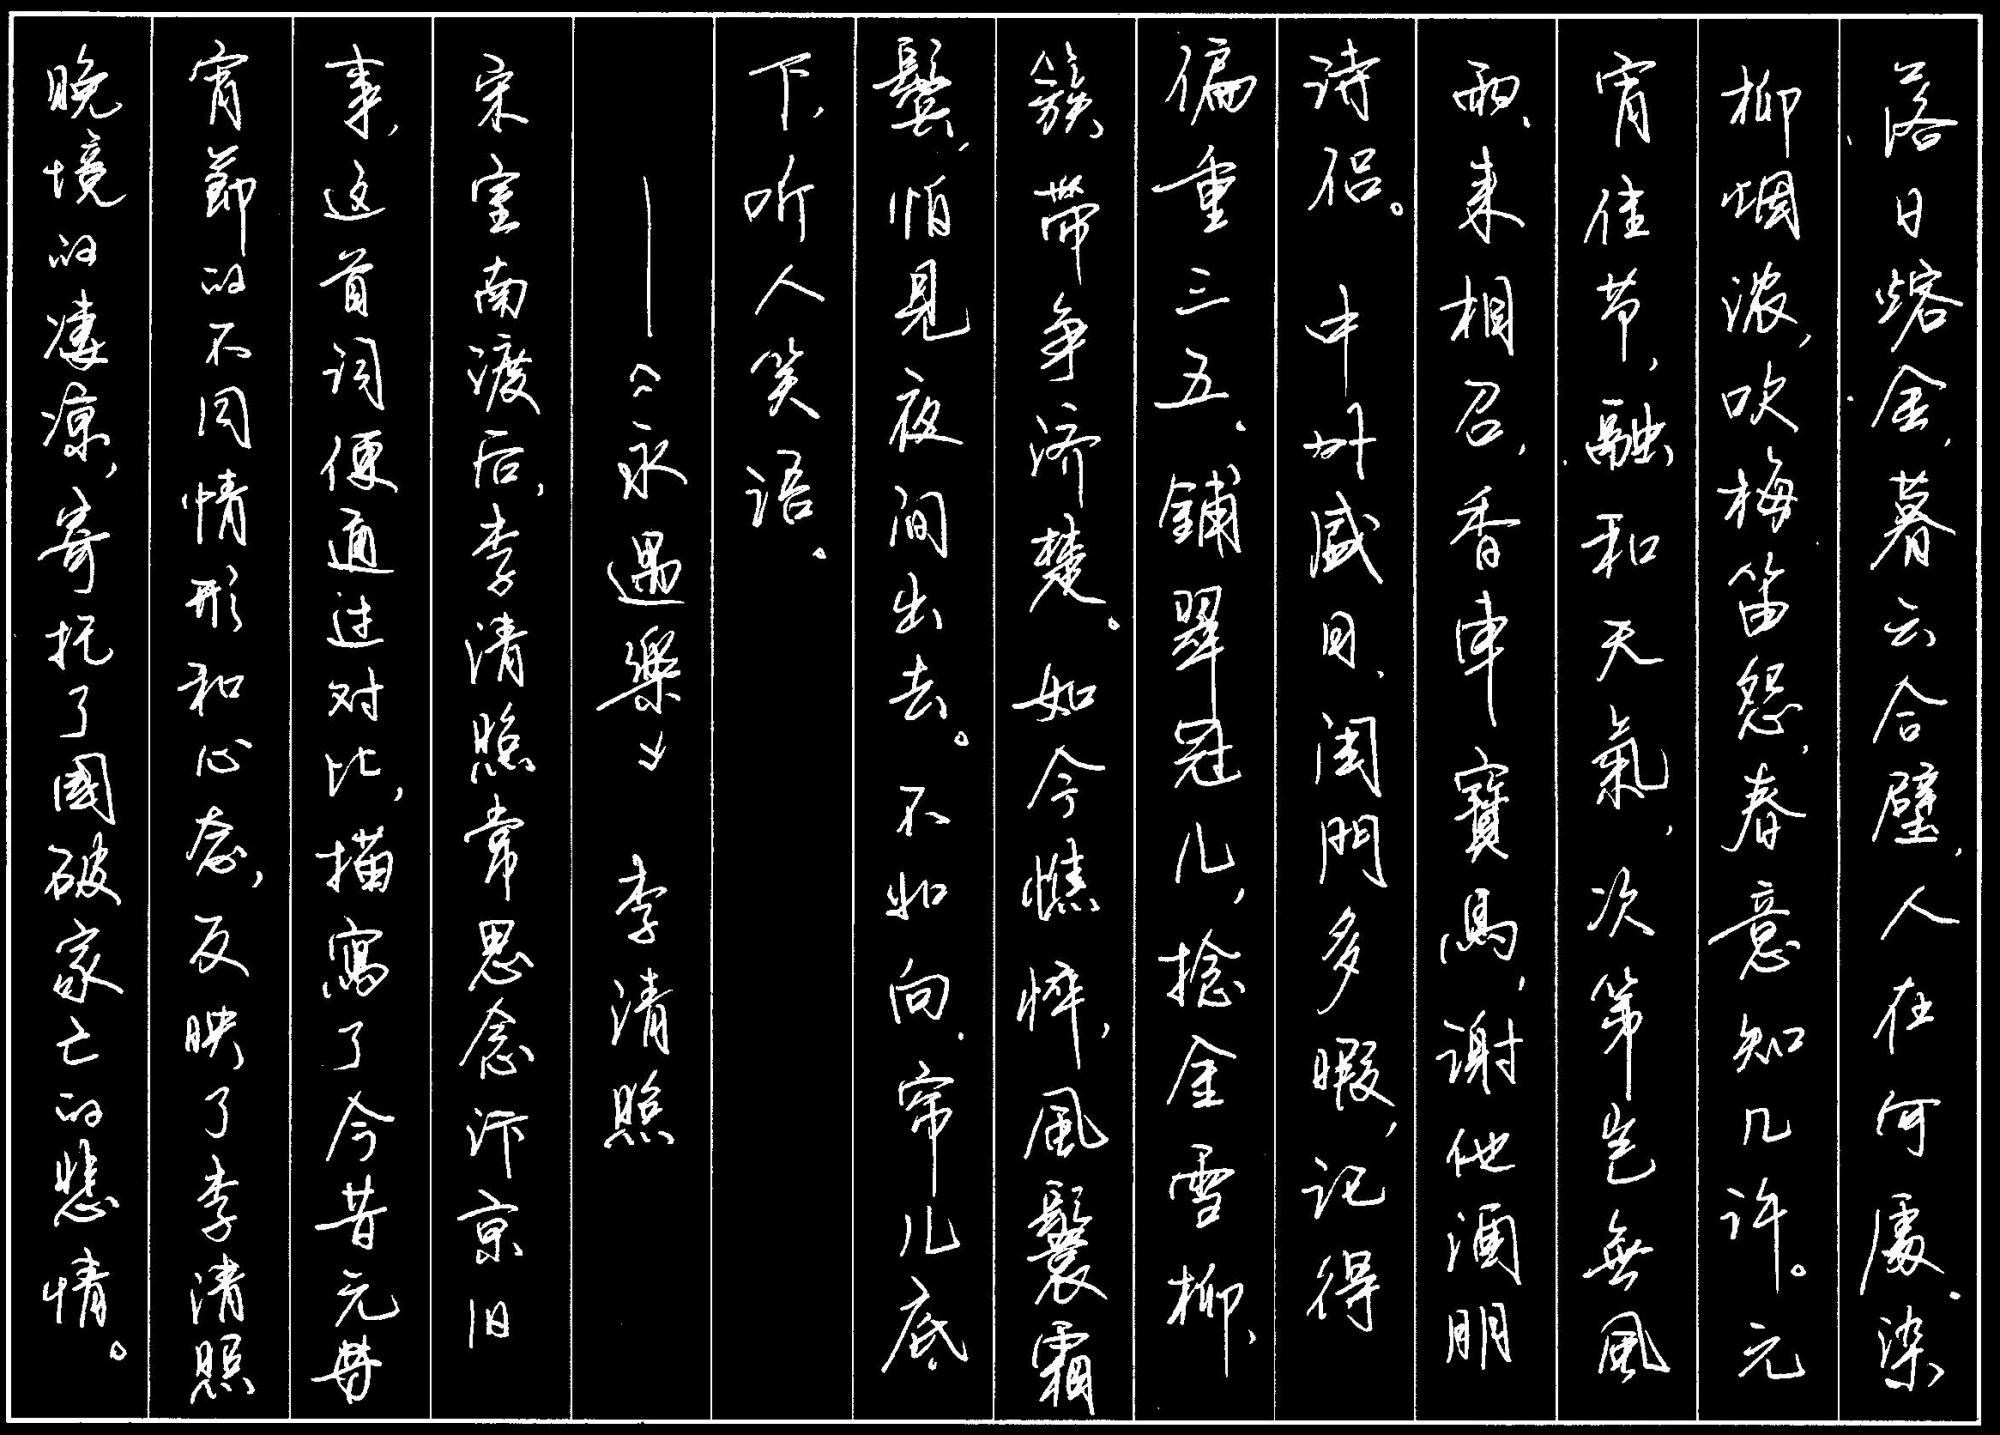 落日熔金,暮云合璧,人在何處。染
柳烟浓,吹梅笛怨,春意知几许。元
宵佳节,融和天氣,次第岂無風
雨。来相召,香車寶馬,谢他酒朋
诗侣。 中州盛日,闺門多暇,记得
偏重三五。鋪翠冠儿,捻金雪柳,
簇帶争济楚。如今憔悴,風鬟霜
鬓,怕見夜间出去。不如向,帘儿底
下,听人笑语。
——《永遇樂》 李清照
宋室南渡后,李清照常思念汴京旧
事,这首词便通过对比,描寫了今昔元
宵節的不同情形和心态,反映了李清照
晚境的凄凉,寄托了國破家亡的悲情。